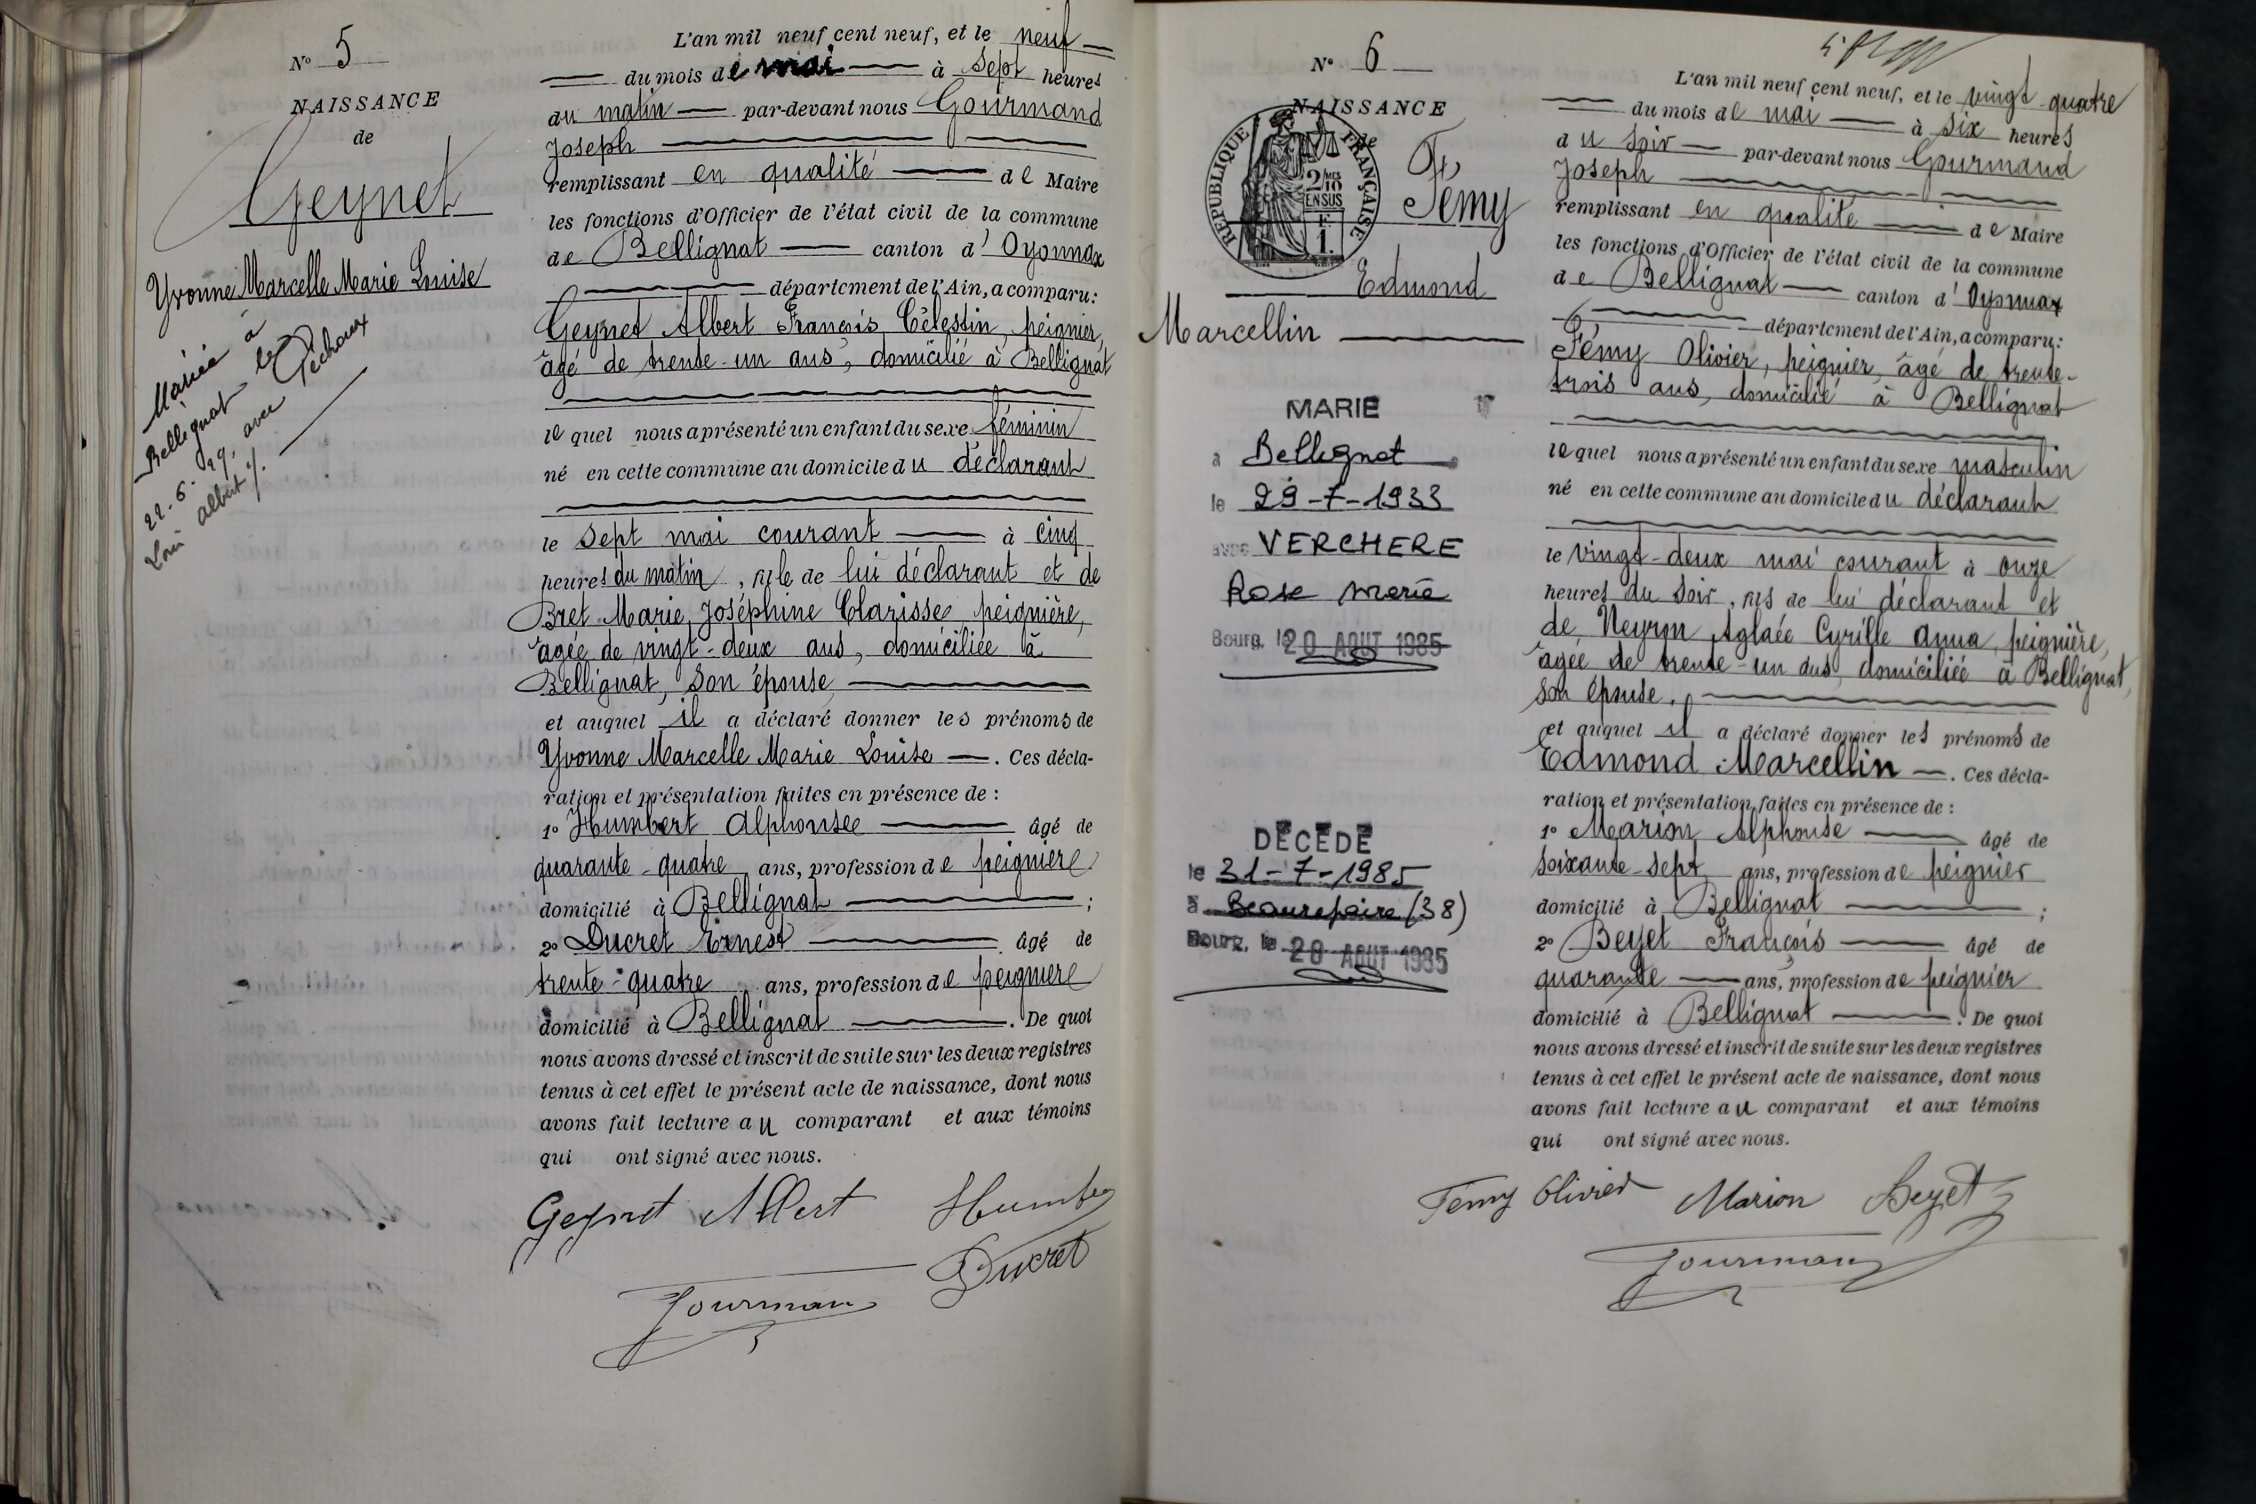 N° 5
NAISSANCE
de
Geynet
Yvonne Marcelle Marie Louise
Mariée à
Bellignat le
22.6.29, avec Péchoux
Louis Albert
L'an mil neuf cent neuf, et le neuf
du mois de mai à sept heures
du matin par-devant nous Gourmand
Joseph
remplissant en qualité de Maire
les fonctions d'Officier de l'état civil de la commune
de Bellignat canton d'Oyonnax
département de l'Ain, a comparu:
Geynet Albert François Célestin, peignier,
âgé de trente-un ans, domicilié à Bellignat
lequel nous a présenté un enfant du sexe féminin
né en cette commune au domicile du déclarant
le sept mai courant à cinq
heures du matin, fille de lui déclarant et de
Bret Marie Joséphine Clarisse, peignière,
âgée de vingt-deux ans, domiciliée à
Bellignat, son épouse
et auquel il a déclaré donner les prénoms de
Yvonne Marcelle Marie Louise. Ces décla-
ration et présentation faites en présence de:
1° Humbert Alphonse âgé de
quarante-quatre ans, profession de peignière
domicilié à Bellignat;
2° Ducret Ernest âgé de
trente-quatre ans, profession de peigniere
domicilié à Bellignat. De quoi
nous avons dressé et inscrit de suite sur les deux registres
tenus à cet effet le présent acte de naissance, dont nous
avons fait lecture au comparant et aux témoins
qui ont signé avec nous.
Geynet Albert Humbert
Ducret
Gourmand
N° 6
NAISSANCE
de
RÉPUBLIQUE FRANÇAISE
2/10
EN SUS
1 F.
Fémy
Edmond
Marcellin
MARIE
à Bellignat
le 29-7-1933
avec VERCHERE
Rose Marie
Bourg, le 20 AOUT 1985
DÉCÉDÉ
le 31-7-1985
à Beaurepaire (38)
Bourg, le 20 AOUT 1985
L'an mil neuf cent neuf, et le vingt-quatre
du mois de mai à six heures
du soir par-devant nous Gourmand
Joseph
remplissant en qualité de Maire
les fonctions d'Officier de l'état civil de la commune
de Bellignat canton d'Oyonnax
département de l'Ain, a comparu:
Fémy Olivier, peignier, âgé de trente-
trois ans, domicilié à Bellignat
lequel nous a présenté un enfant du sexe masculin
né en cette commune au domicile du déclarant
le vingt-deux mai courant à onze
heures du soir, fils de lui déclarant et
de Neyron Aglaée Cyrille Anna, peignière,
âgée de trente-un ans, domiciliée à Bellignat,
son épouse.
et auquel il a déclaré donner les prénoms de
Edmond Marcellin. Ces décla-
ration et présentation faites en présence de:
1° Marion Alphonse âgé de
soixante-sept ans, profession de peignier
domicilié à Bellignat;
2° Beyet François âgé de
quarante ans, profession de peignier
domicilié à Bellignat. De quoi
nous avons dressé et inscrit de suite sur les deux registres
tenus à cet effet le présent acte de naissance, dont nous
avons fait lecture au comparant et aux témoins
qui ont signé avec nous.
Fémy Olivier Marion Beyet
Gourmand